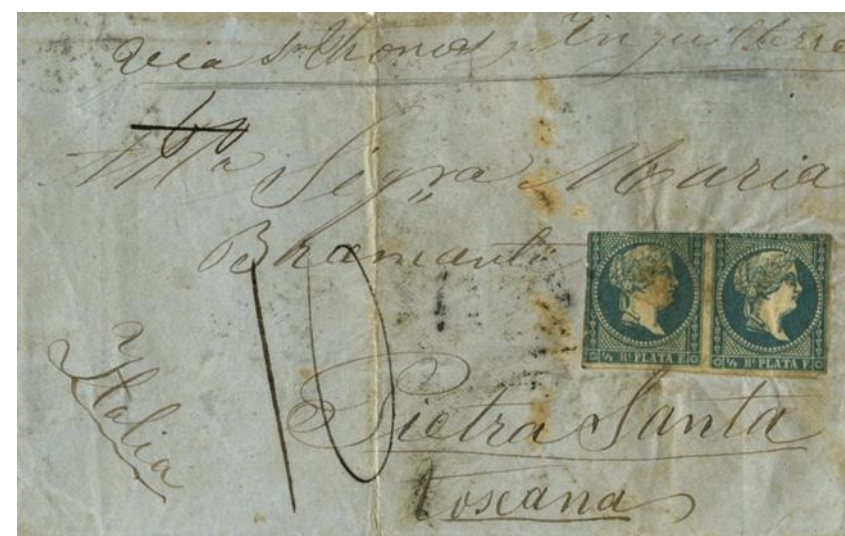 Via Sn Thomas y Inguilterra
Illa Sigra Maria
Bramanti
10
CORREOS
½ Rl PLATA F. ½ Rl PLATA F.
Italia
Pietra Santa
Toscana